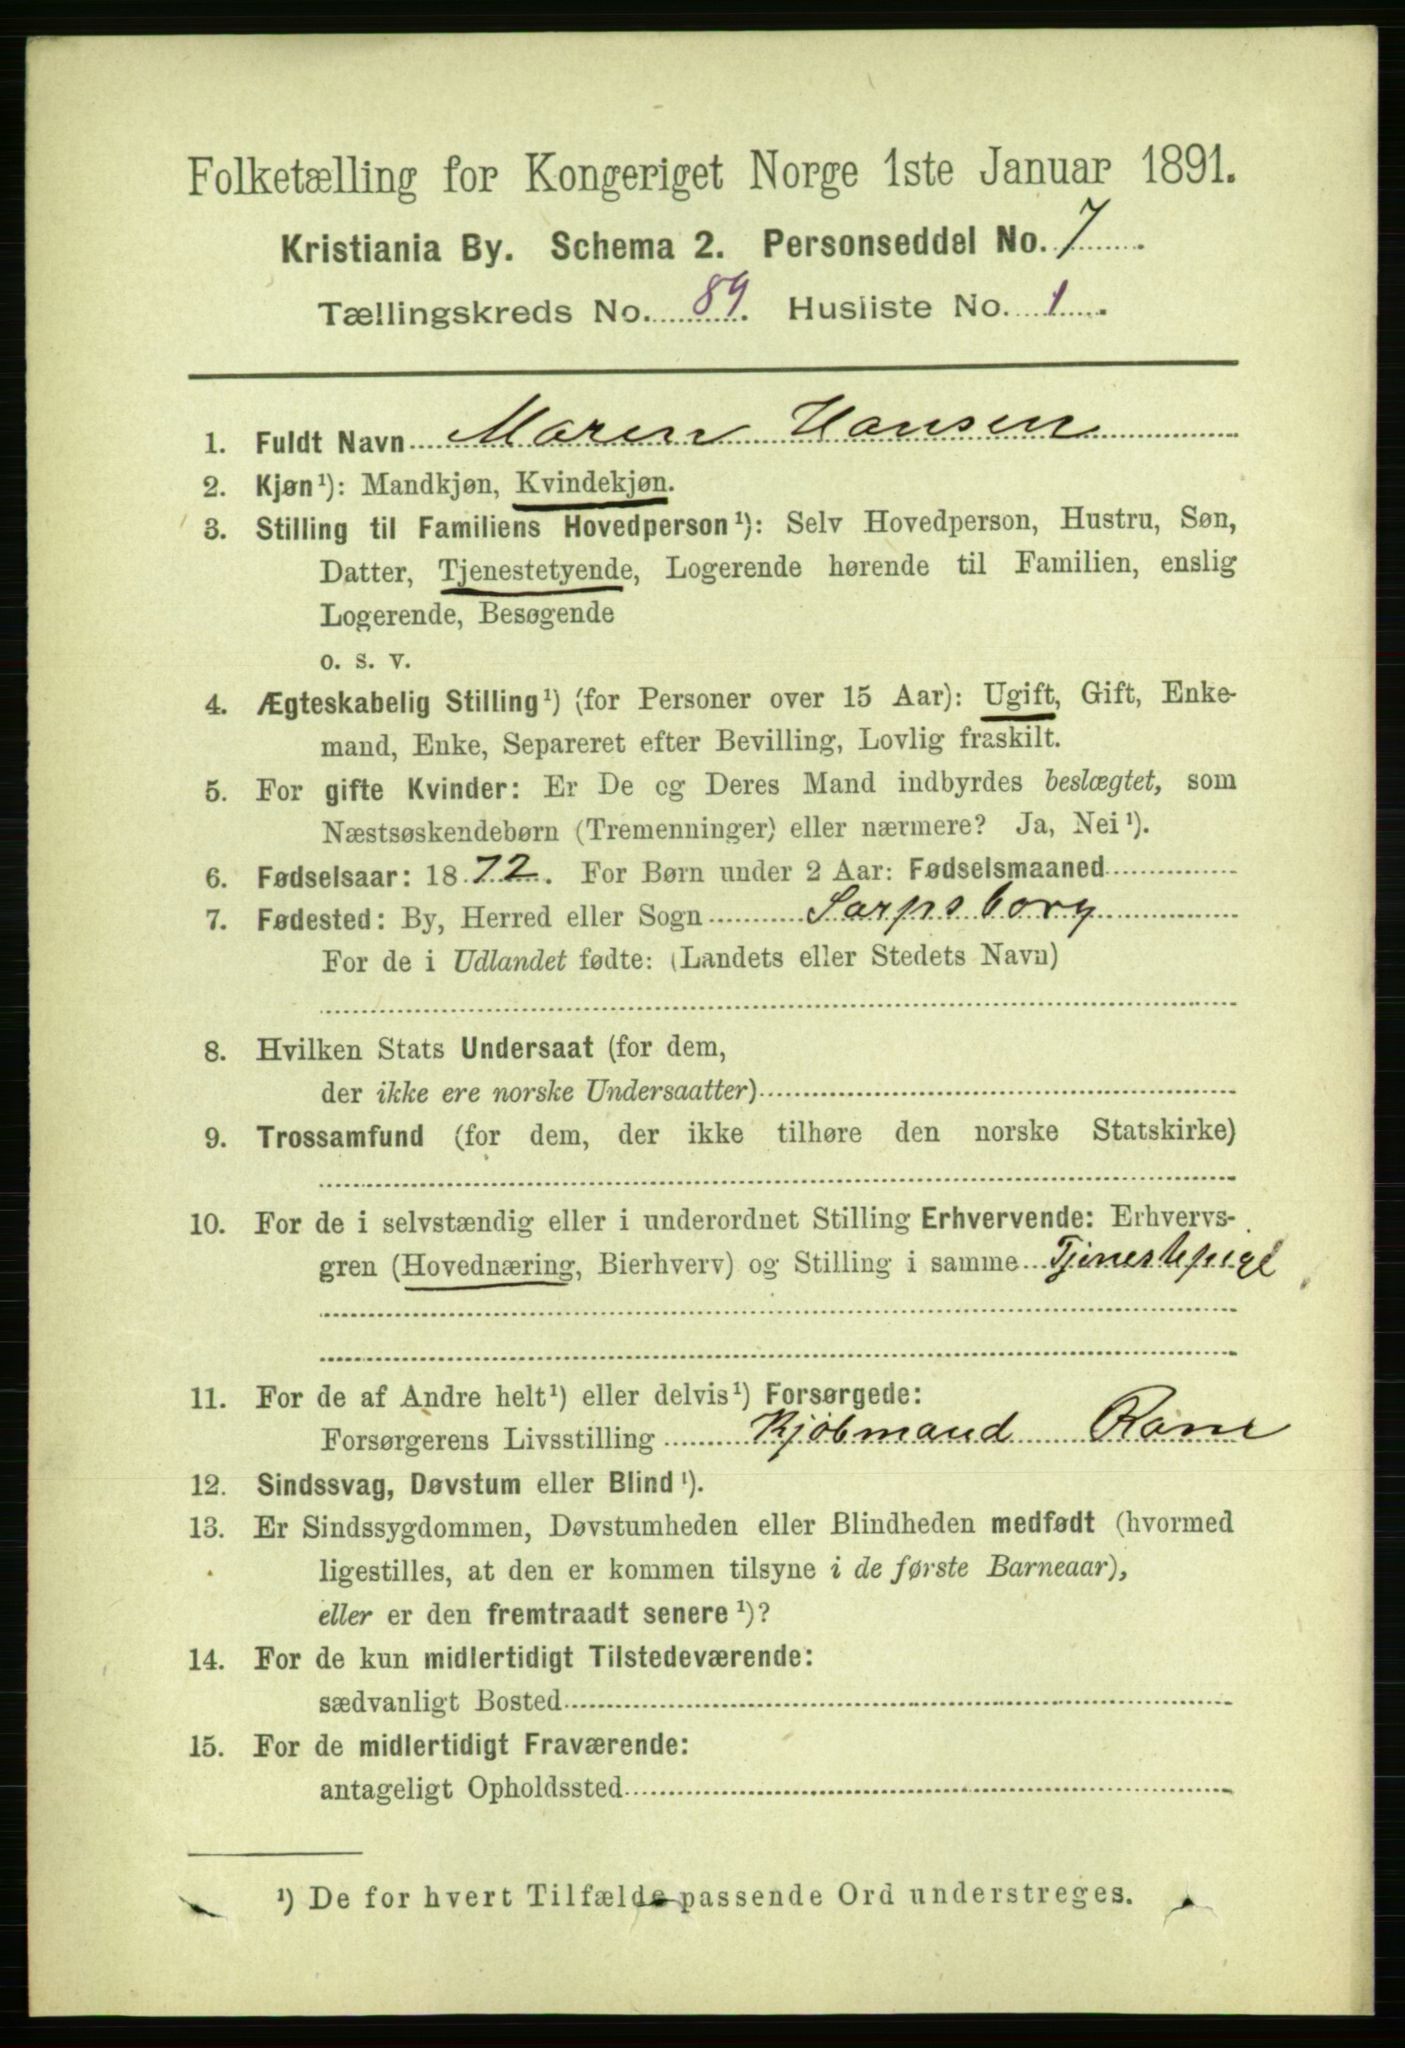 Folketælling for Kongeriget Norge 1ste Januar 1891.
Kristiania By. Schema 2. Personseddel No. 7
Tællingskreds No. 89. Husliste No. 1.
1. Fuldt Navn Maren Hansen
2. Kjøn¹): Mandkjøn, Kvindekjøn.
3. Stilling til Familiens Hovedperson¹): Selv Hovedperson, Hustru, Søn,
Datter, Tjenestetyende, Logerende hørende til Familien, enslig
Logerende, Besøgende
o. s. v.
4. Ægteskabelig Stilling¹) (for Personer over 15 Aar): Ugift, Gift, Enke-
mand, Enke, Separeret efter Bevilling, Lovlig fraskilt.
5. For gifte Kvinder: Er De og Deres Mand indbyrdes beslægtet, som
Næstsøskendebørn (Tremenninger) eller nærmere? Ja, Nei¹).
6. Fødselsaar: 1872. For Børn under 2 Aar: Fødselsmaaned
7. Fødested: By, Herred eller Sogn Sarpsborg
For de i Udlandet fødte: (Landets eller Stedets Navn)
8. Hvilken Stats Undersaat (for dem,
der ikke ere norske Undersaatter)
9. Trossamfund (for dem, der ikke tilhøre den norske Statskirke)
10. For de i selvstændig eller i underordnet Stilling Erhvervende: Erhvervs-
gren (Hovednæring, Bierhverv) og Stilling i samme Tjenestepige
11. For de af Andre helt¹) eller delvis¹) Forsørgede:
Forsørgerens Livsstilling Kjöbmand
12. Sindssvag, Døvstum eller Blind¹).
13. Er Sindssygdommen, Døvstumheden eller Blindheden medfødt (hvormed
ligestilles, at den er kommen tilsyne i de første Barneaar),
eller er den fremtraadt senere¹)?
14. For de kun midlertidigt Tilstedeværende:
sædvanligt Bosted
15. For de midlertidigt Fraværende:
antageligt Opholdssted
¹) De for hvert Tilfælde passende Ord understreges.